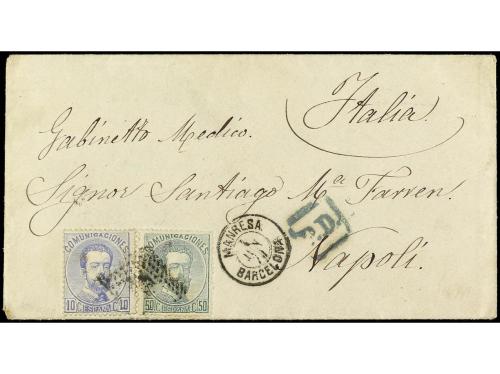 Italia.
Gabinetto Medico.
Signor Santiago Mª Farren.
Napoli.
MANRESA
BARCELONA
P.D.
COMUNICACIONES
10 C. ESPAÑA C. 10
COMUNICACIONES
50 C. ESPAÑA C. 50